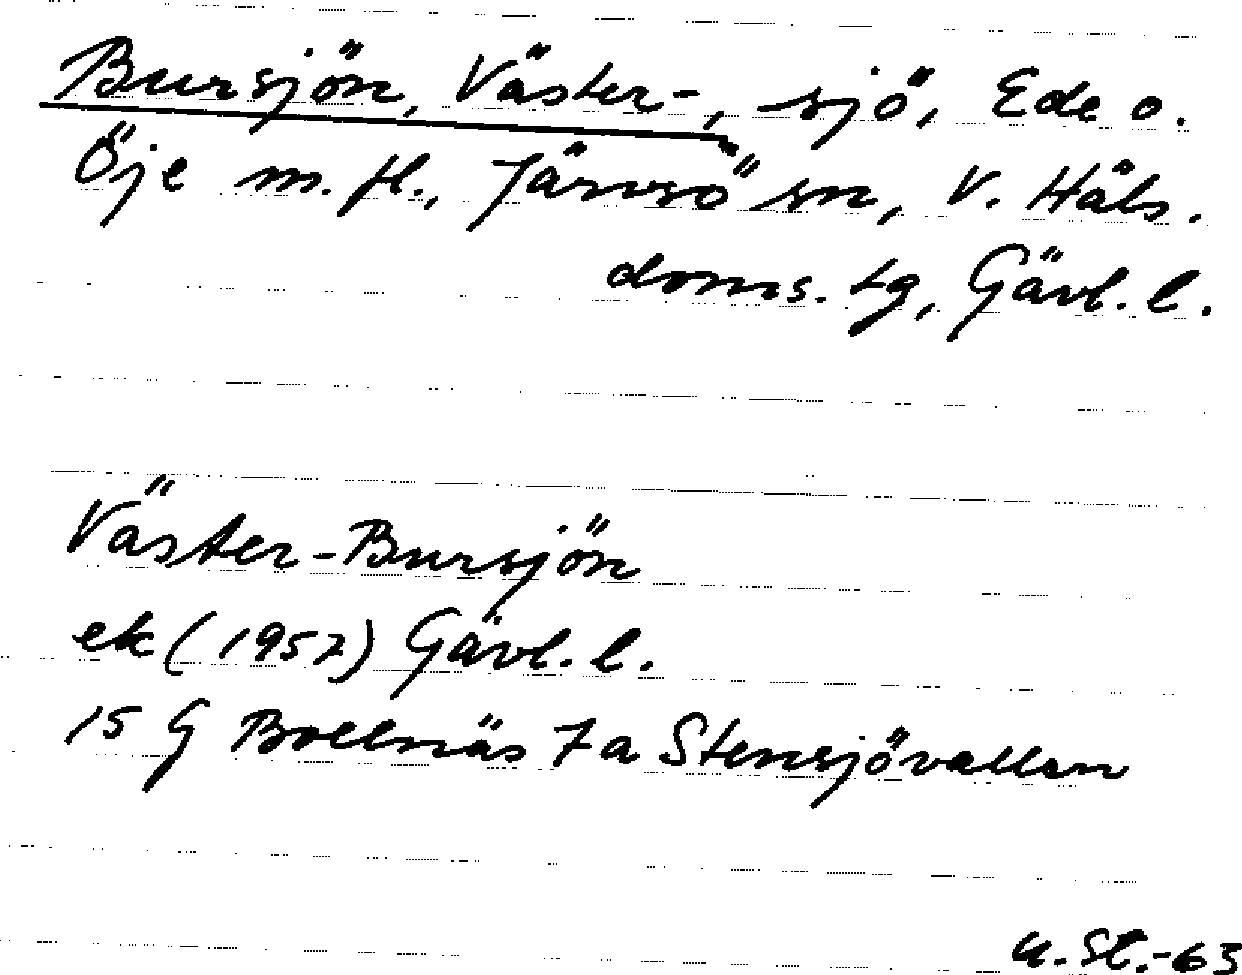 Bursjön, Väster-, sjö, Ede o.
Öje m. fl., Järvsö sn, V. Häls.
doms. tg, Gävl. l.
Väster-Bursjön
ek (1957) Gävl. l.
15 G Bollnäs 7 a Stensjövallen
u. St.-63